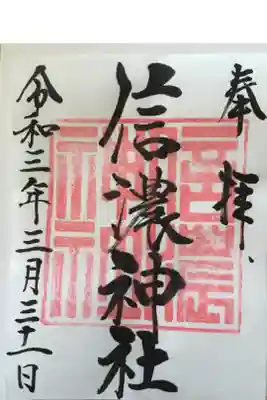 奉拝
信濃神社
令和三年三月三十一日